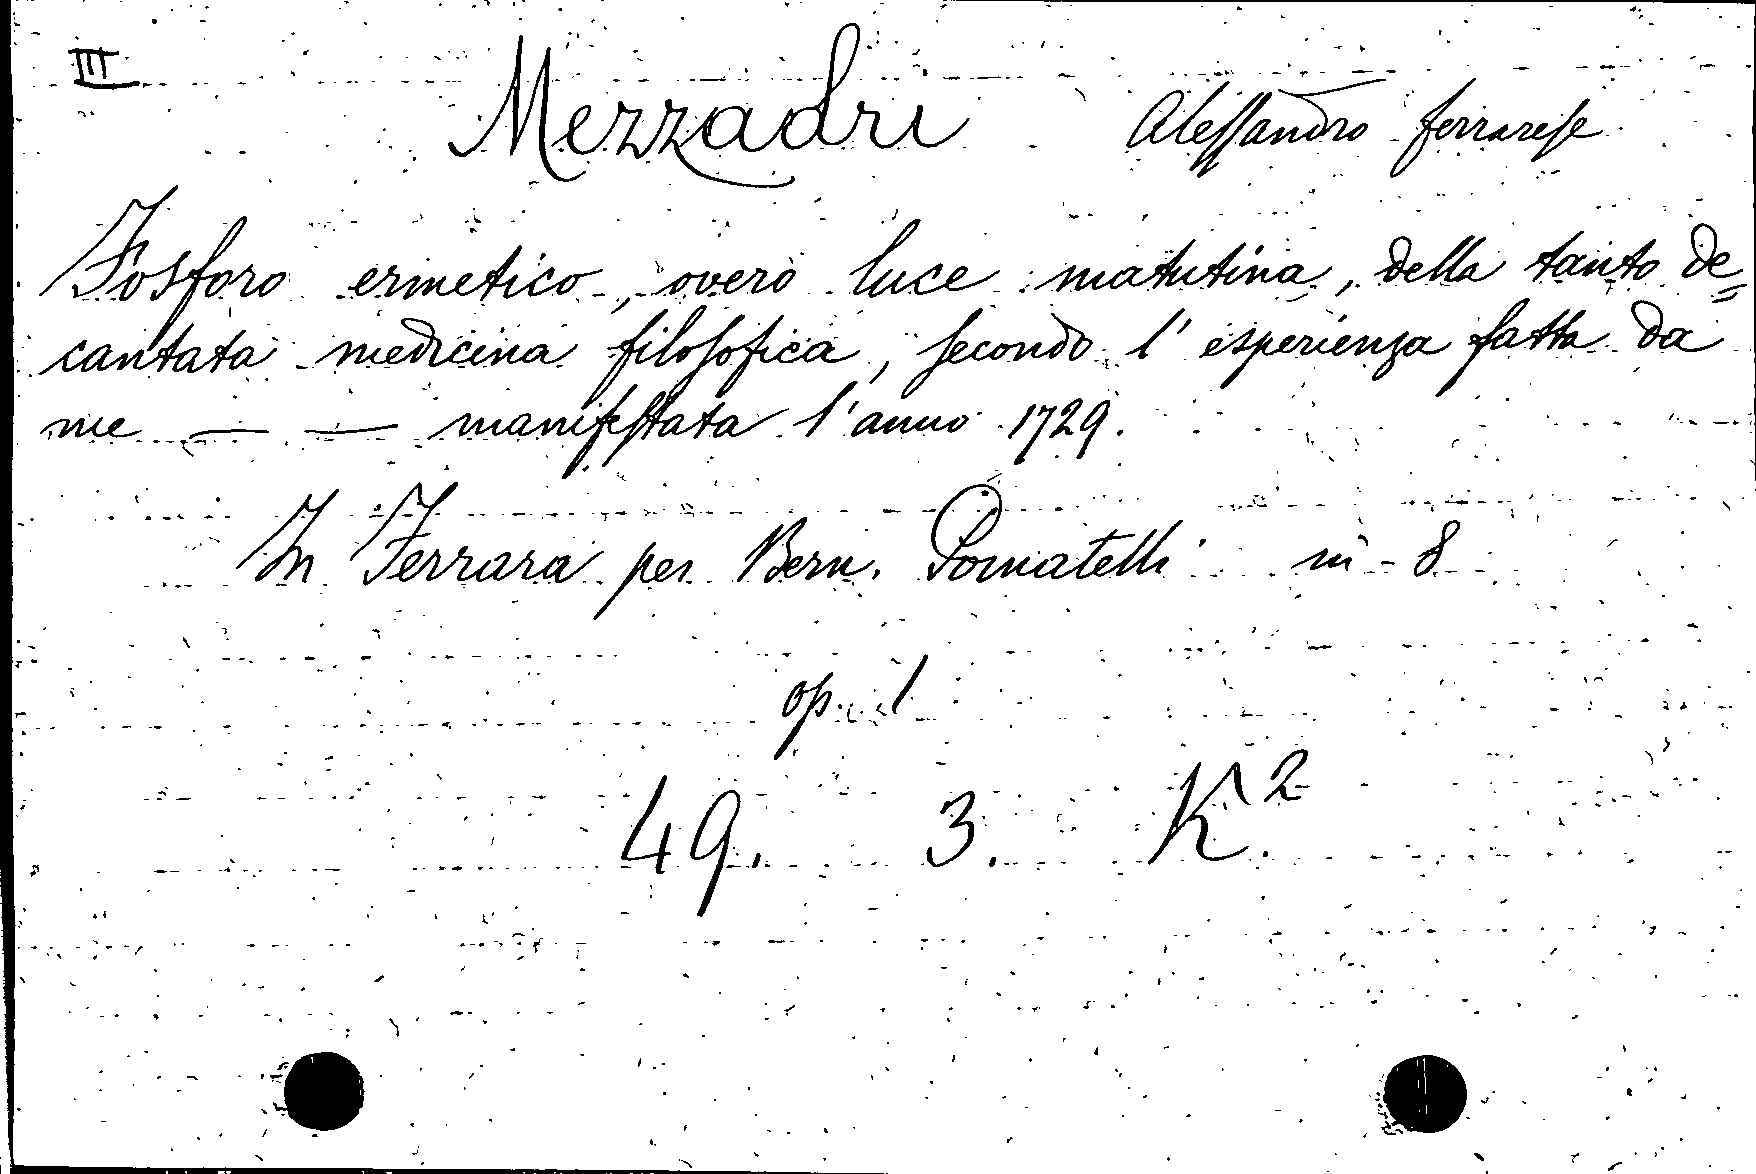 III
Mezzadri Alessandro ferrarese
Fosforo ermetico, overo luce matutina, della tanto de=
cantata medicina filosofica, secondo l'esperienza fatta da
me — — manifestata l'anno 1729.
In Ferrara per Bern. Pomatelli in-8
op. 1
49. 3. K².